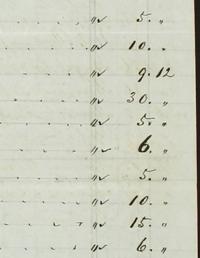 . . . . " 5. "
. . . . " 10. "
. . . . " 9.12
. . . . " 30. "
. . . . " 5. "
. . . . " 6. "
. . . . " 5. "
. . . . " 10. "
. . . . " 15. "
. . . . " 6. "